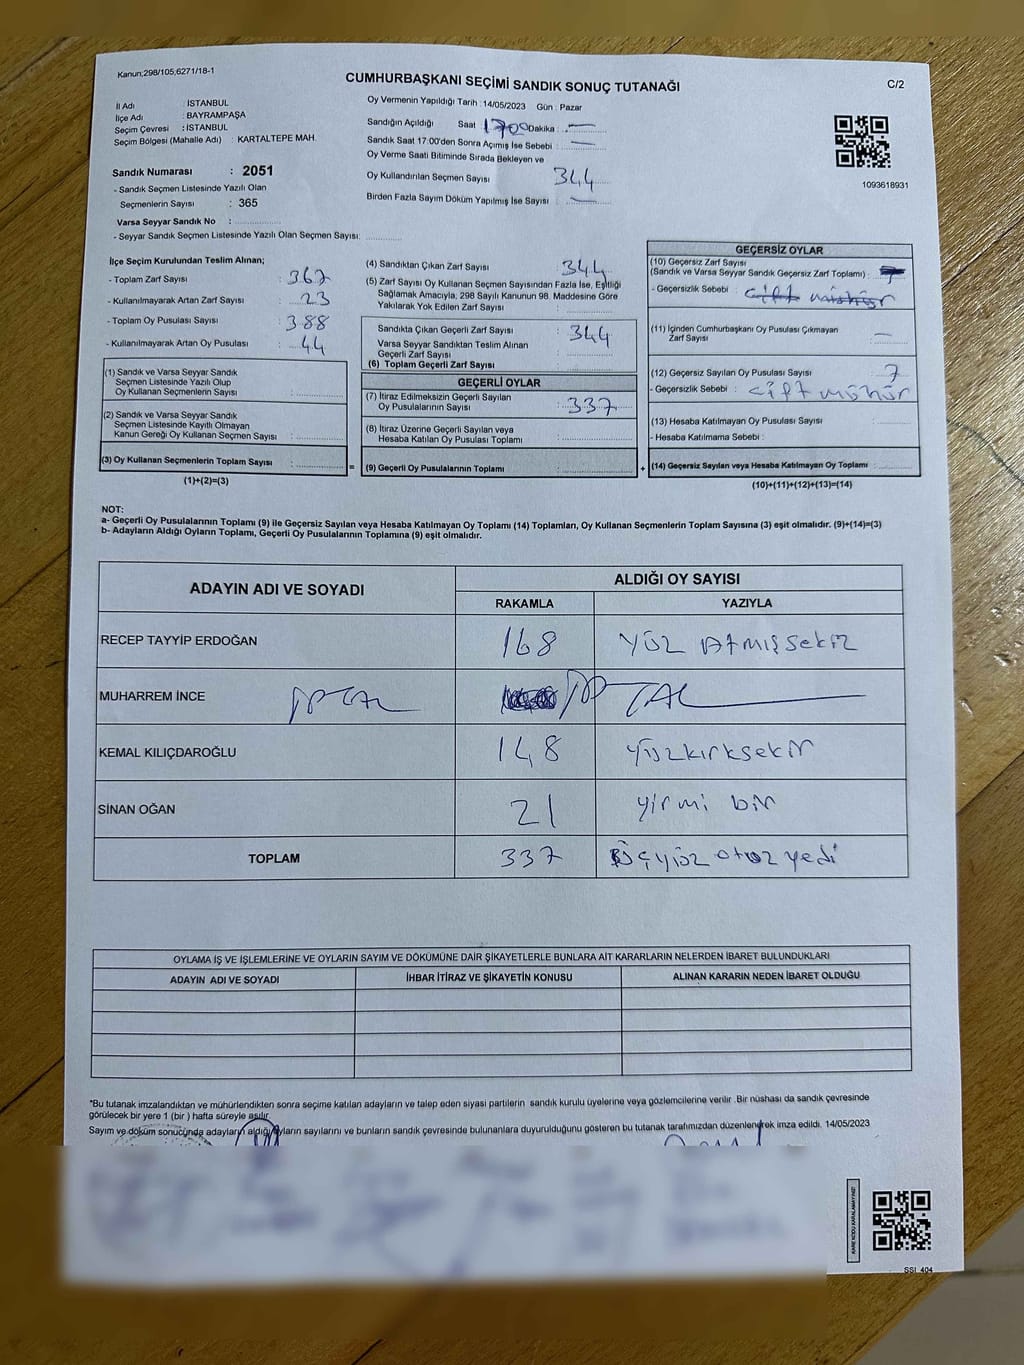 Kanun;298/105,6271/18-1
CUMHURBAŞKANI SEÇİMİ SANDIK SONUÇ TUTANAĞI
C/2
İl Adı : İSTANBUL
İlçe Adı : BAYRAMPAŞA
Seçim Çevresi : İSTANBUL
Seçim Bölgesi (Mahalle Adı) : KARTALTEPE MAH.
Sandık Numarası : 2051
- Sandık Seçmen Listesinde Yazılı Olan
Seçmenlerin Sayısı : 365
Varsa Seyyar Sandık No :
- Seyyar Sandık Seçmen Listesinde Yazılı Olan Seçmen Sayısı:
Oy Vermenin Yapıldığı Tarih : 14/05/2023 Gün : Pazar
Sandığın Açıldığı Saat 1700 Dakika : —
Sandık Saat 17:00'den Sonra Açımış İse Sebebi : —
Oy Verme Saati Bitiminde Sırada Bekleyen ve
Oy Kullandırılan Seçmen Sayısı 344
Birden Fazla Sayım Döküm Yapılmış İse Sayısı : —
1093618931
İlçe Seçim Kurulundan Teslim Alınan;
- Toplam Zarf Sayısı : 367
- Kullanılmayarak Artan Zarf Sayısı : 23
- Toplam Oy Pusulası Sayısı : 388
- Kullanılmayarak Artan Oy Pusulası : 44
(1) Sandık ve Varsa Seyyar Sandık
Seçmen Listesinde Yazılı Olup
Oy Kullanan Seçmenlerin Sayısı :
(2) Sandık ve Varsa Seyyar Sandık
Seçmen Listesinde Kayıtlı Olmayan
Kanun Gereği Oy Kullanan Seçmen Sayısı :
(3) Oy Kullanan Seçmenlerin Toplam Sayısı :
(1)+(2)=(3)
=
(4) Sandıktan Çıkan Zarf Sayısı : 344
(5) Zarf Sayısı Oy Kullanan Seçmen Sayısından Fazla İse, Eşitliği
Sağlamak Amacıyla, 298 Sayılı Kanunun 98. Maddesine Göre
Yakılarak Yok Edilen Zarf Sayısı :
Sandıkta Çıkan Geçerli Zarf Sayısı : 344
Varsa Seyyar Sandıktan Teslim Alınan
Geçerli Zarf Sayısı :
(6) Toplam Geçerli Zarf Sayısı :
GEÇERLİ OYLAR
(7) İtiraz Edilmeksizin Geçerli Sayılan
Oy Pusulalarının Sayısı : 337
(8) İtiraz Üzerine Geçerli Sayılan veya
Hesaba Katılan Oy Pusulası Toplamı :
(9) Geçerli Oy Pusulalarının Toplamı :
+
GEÇERSİZ OYLAR
(10) Geçersiz Zarf Sayısı
(Sandık ve Varsa Seyyar Sandık Geçersiz Zarf Toplamı) : 7
- Geçersizlik Sebebi : çift mühür
(11) İçinden Cumhurbaşkanı Oy Pusulası Çıkmayan
Zarf Sayısı : —
(12) Geçersiz Sayılan Oy Pusulası Sayısı : 7
- Geçersizlik Sebebi : çift mühür
(13) Hesaba Katılmayan Oy Pusulası Sayısı :
- Hesaba Katılmama Sebebi :
(14) Geçersiz Sayılan veya Hesaba Katılmayan Oy Toplamı :
(10)+(11)+(12)+(13)=(14)
NOT:
a- Geçerli Oy Pusulalarının Toplamı (9) ile Geçersiz Sayılan veya Hesaba Katılmayan Oy Toplamı (14) Toplamları, Oy Kullanan Seçmenlerin Toplam Sayısına (3) eşit olmalıdır. (9)+(14)=(3)
b- Adayların Aldığı Oyların Toplamı, Geçerli Oy Pusulalarının Toplamına (9) eşit olmalıdır.
ADAYIN ADI VE SOYADI
ALDIĞI OY SAYISI
RAKAMLA YAZIYLA
RECEP TAYYİP ERDOĞAN 168 Yüz Atmışsekiz
MUHARREM İNCE İPTAL İPTAL
KEMAL KILIÇDAROĞLU 148 Yüzkırksekiz
SİNAN OĞAN 21 yirmi bir
TOPLAM 337 Üçyüz otuz yedi
OYLAMA İŞ VE İŞLEMLERİNE VE OYLARIN SAYIM VE DÖKÜMÜNE DAİR ŞİKAYETLERLE BUNLARA AİT KARARLARIN NELERDEN İBARET BULUNDUKLARI
ADAYIN ADI VE SOYADI İHBAR İTİRAZ VE ŞİKAYETİN KONUSU ALINAN KARARIN NEDEN İBARET OLDUĞU
*Bu tutanak imzalandıktan ve mühürlendikten sonra seçime katılan adayların ve talep eden siyasi partilerin sandık kurulu üyelerine veya gözlemcilerine verilir .Bir nüshası da sandık çevresinde
görülecek bir yere 1 (bir ) hafta süreyle asılır.
Sayım ve döküm sonucunda adayların aldığı oyların sayılarını ve bunların sandık çevresinde bulunanlara duyurulduğunu gösteren bu tutanak tarafımızdan düzenlenerek imza edildi. 14/05/2023
KARE KODU KARALAMAYINIZ!
SSI_404